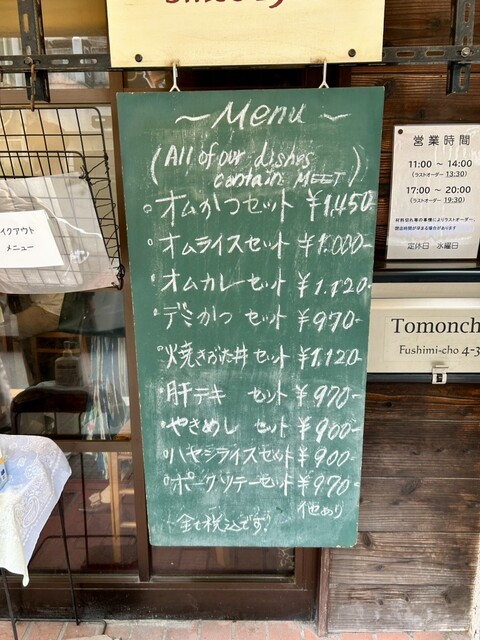 ~ Menu ~
(All of our dishes
contain MEET)
オムかつセット ¥1,450
オムライスセット ¥1.000-
オムカレーセット ¥1.120-
デミかつ セット ¥970-
焼きぶた丼 セット ¥1,120-
肝テキ セット ¥970-
やきめし セット ¥900-
ハヤシライスセット ¥900-
ポークソテーセット ¥970-
他あり
全て税込です。
営業時間
11:00 ~ 14:00
(ラストオーダー 13:30)
17:00 ~ 20:00
(ラストオーダー 19:30)
材料切れ等の事情によりラストオーダー、
閉店時間が早まる場合があります
定休日 水曜日
イクアウト
メニュー
Tomonch
Fushimi-cho 4-3